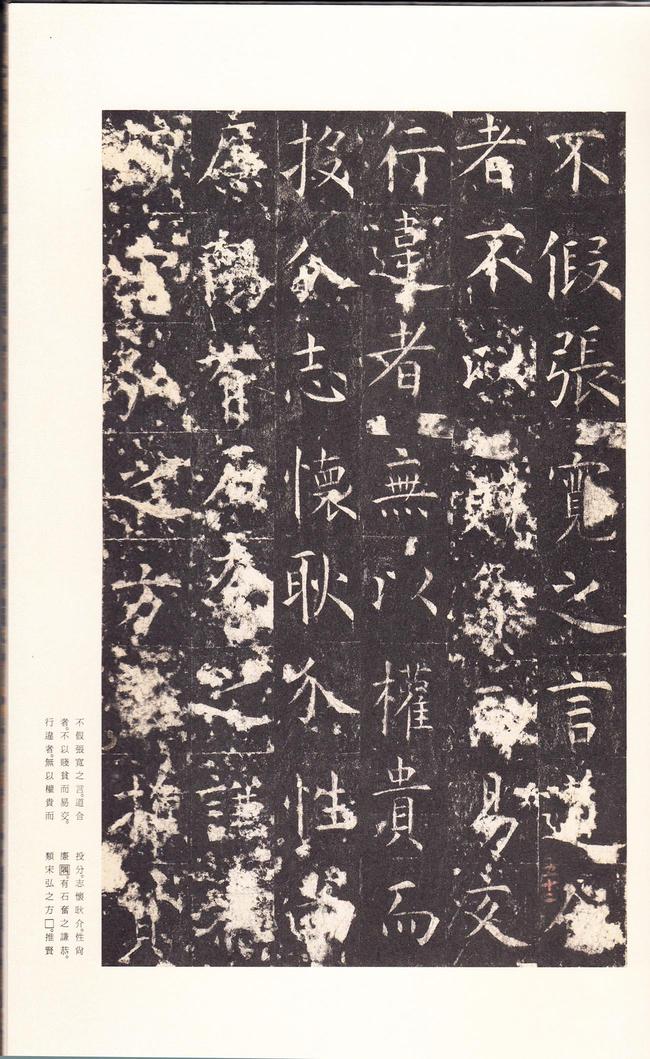 不假張寬之言道合
者不以賤貧而易交
行違者無以權貴而
投分志懷耿介性尚
廉隅有石奮之謙恭
類宋弘之方推賢
不假張寬之言。道合
者。不以賤貧而易交。
行違者。無以權貴而
投分。志懷耿介。性尚
廉隅。有石奮之謙恭。
類宋弘之方□。推賢